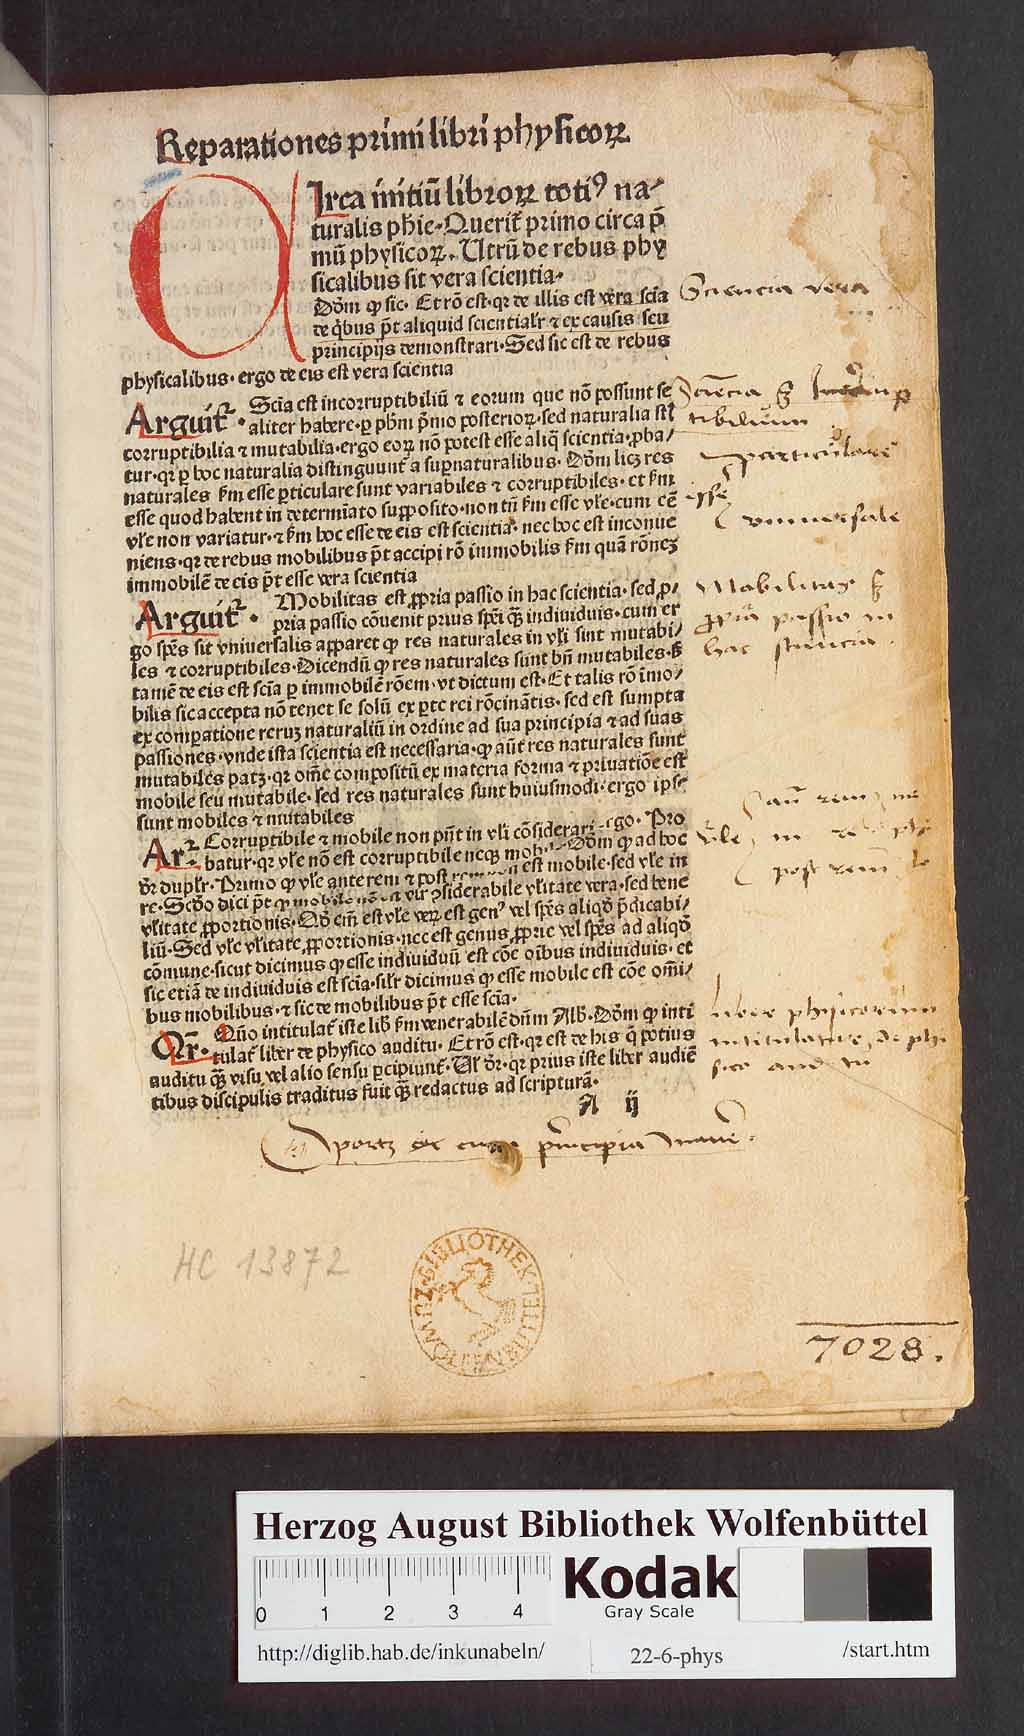 Reparationes primi libri physicoꝝ
CIrca initiū libroꝝ totiꝰ na⸗
turalis phie. Querit̄ primo circa p̄
mū physicoꝝ. Utrū de rebus phy
sicalibus sit vera scientia.
Dōm ꝙ sic. Et rō est. qꝛ de illis est vera scīa
de q̄bus pt̄ aliquid scientialr̄ ⁊ ex causis seu
principijs demonstrari. Sed sic est de rebus
physicalibus. ergo de eis est vera scientia
Arguit̄. Scīa est incorruptibiliū ⁊ eorum que nō possunt se
aliter habere. ꝑ ph̄m pͥmo posterioꝝ. sed naturalia st̄
corruptibilia ⁊ mutabilia. ergo eoꝝ nō potest esse aliq̄ scientia. ꝓba
tur. qꝛ ꝑ hoc naturalia distinguunt̄ a suꝑnaturalibus. Dōm licꝫ res
naturales ẜm esse ꝑticulare sunt variabiles ⁊ corruptibiles. et ẜm
esse quod habent in determīato supposito. non tn̄ ẜm esse vl̄e. cum eē
vl̄e non variatur. ⁊ ẜm hoc esse de eis est scientia. nec hoc est inconue
niens. qꝛ de rebus mobilibus pt̄ accipi rō immobilis ẜm quā rōneꝫ
immobilē de eis pt̄ esse vera scientia
Arguit̄. Mobilitas est ꝓpria passio in hac scientia. sed ꝓ⸗
pria passio cōuenit prius spēi qꝫ̄ indiuiduis. cum er
go spēs sit vniuersalis apparet ꝙ res naturales in vl̄i sint mutabi⸗
les ⁊ corruptibiles. Dicendū ꝙ res naturales sunt bn̄ mutabiles. ẜ
tamē de eis est scīa ꝑ immobilē rōem. vt dictum est. Et talis rō imo⸗
bilis sic accepta nō tenet se solū ex ꝑte rei rōcinātis. sed est sumpta
ex comꝑatione reruꝫ naturaliū in ordine ad sua principia ⁊ ad suas
passiones. vnde ista scientia est necessaria. ꝙ aūt res naturales sunt
mutabiles patꝫ. qꝛ om̄e compositū ex materia forma ⁊ priuatiōe est
mobile seu mutabile. sed res naturales sunt huiusmodi. ergo ipse
sunt mobiles ⁊ mutabiles
Ar̄. Corruptibile ⁊ mobile non pn̄t in vl̄i cōsiderari ergo. Pro
batur. qꝛ vl̄e nō est corruptibile neqꝫ Dōm ꝙ ad hoc
dr̄ duplr̄. Primo ꝙ vl̄e ante rem ⁊ post est mobile. sed vl̄e in
re. Scd̄o dici pt̄ ꝙ ꝯsiderabile vl̄itate vera. sed bene
vl̄itate ꝓportionis. Qd̄ em̄ est vl̄e veꝝ est genꝰ vel spēs aliqd̄ p̄dicabi⸗
liū. Sed vl̄e vl̄itate ꝓportionis. nec est genus ꝓprie vel spēs ad aliqd̄
cōmune. sicut dicimus ꝙ esse indiuiduū est cōe oībus indiuiduis. et
sic etiā de indiuiduis est scīa. silr̄ dicimus ꝙ esse mobile est cōe omī⸗
bus mobilibus. ⁊ sic de mobilibus pt̄ esse scīa.
Qr̄. Qūo intitulat̄ iste lib̄ ẜm venerabilē dn̄m Alb̄. Dōm ꝙ inti
tulat̄ liber de physico auditu. Et rō est. qꝛ est de his q̄ potius
auditu qꝫ̄ visu vel alio sensu ꝑcipiunt̄. Ul̄ dr̄. qꝛ prius iste liber audiē
tibus discipulis traditus fuit qꝫ̄ redactus ad scripturā.
A ij
Sciencia vera
tibilium
particulare
esse
vniuersale
Mobilitas
ꝓpria passio in
hac sciencia
vl̄e
post rem
liber phisicorum
intitulatur de phi
sico auditu
principia
HC 13872
BIBLIOTHEK
WOLFENBÜTTEL
7028.
Herzog August Bibliothek Wolfenbüttel
0 1 2 3 4
Kodak
Gray Scale
http://diglib.hab.de/inkunabeln/ 22-6-phys /start.htm